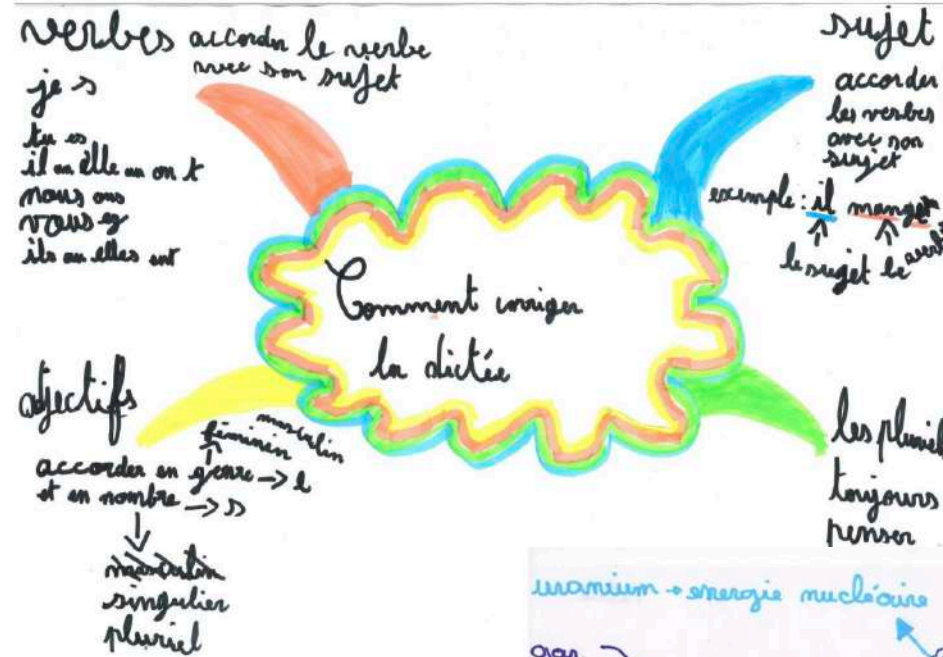 verbes accorder le verbe
avec son sujet
je s
tu es
il ou elle ou on t
nous ons
vous ez
ils ou elles ent
sujet
accorder
les verbes
avec son
sujet
exemple : il mange
le sujet le verbe
Comment corriger
la dictée
adjectifs
masculin
féminin
accorder en genre → e
et en nombre → s
masculin
singulier
pluriel
les pluriel
toujours
penser
uranium → energie nucléaire